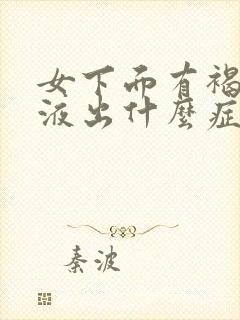 女下而有褐
液出什麼症
秦波